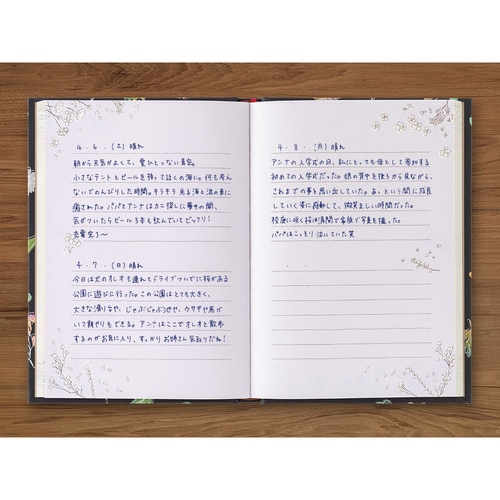 4.6.(土)晴れ
朝から天気がよくて、雲ひとつない青空。
小さなテントとビールを持って近くの海に。何も考え
ないでのんびりした時間。キラキラ光る海と波の音に
癒された。パパとアンナはカニ探しに夢中の間、
気がついたらビール3本も飲んでいてビックリ!
充電完了〜
4.7.(日)晴れ
今日は犬のレオも連れてドライブついでに桜がある
公園に遊びに行った。この公園はとても大きく、
大きな滑り台や、じゃぶじゃぶ池や、ウサギや馬が
いて餌やりもできる。アンナはここでレオと散歩
するのがお気に入り、すっかりお姉さん気取りだね!
4.8.(月)晴れ
アンナの入学式の日、私にとっても母として参加する
初めての入学式だった。娘の背中を後ろから見ながら、
これまでの事を思い出していた。あっという間に成長
していく姿に感動して、微笑ましい時間だった。
校庭に咲く桜は満開で家族で写真を撮った。
パパはこっそり泣いていた笑